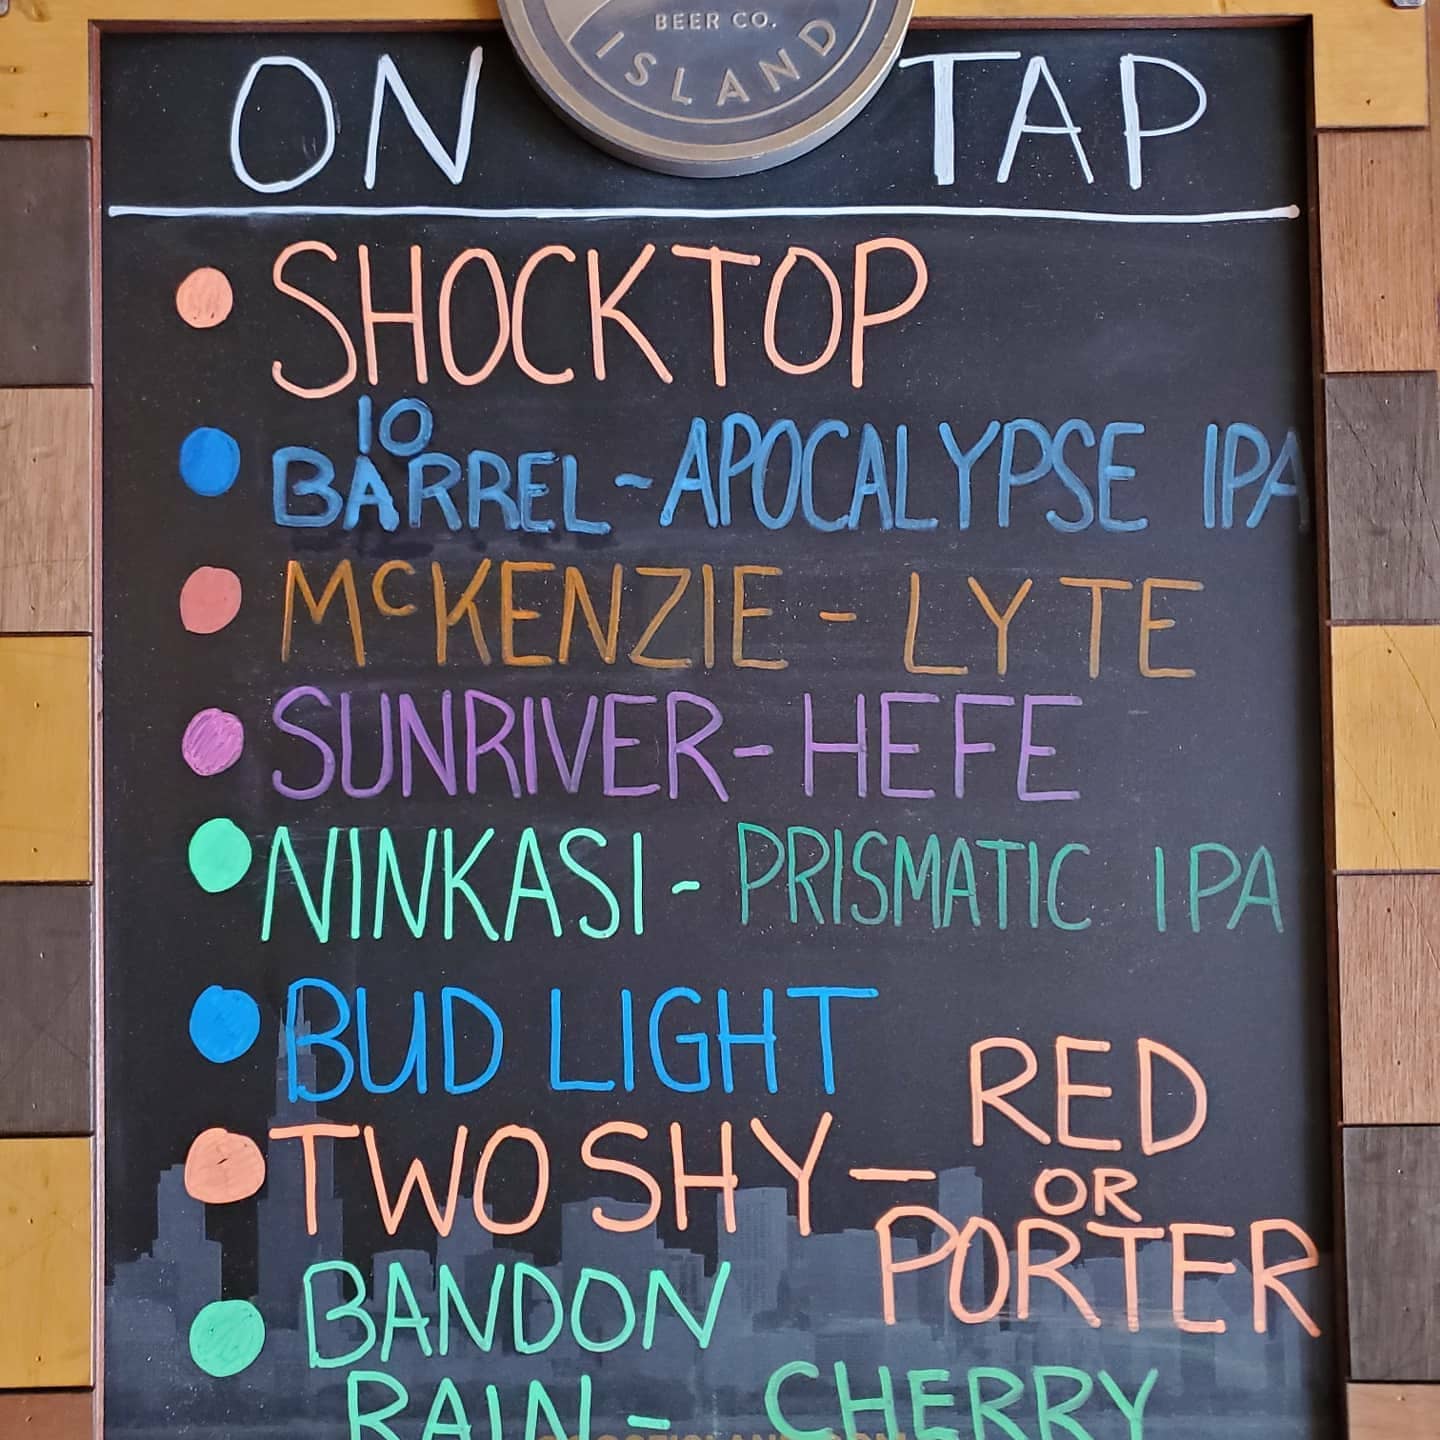 BEER CO.
ISLAND
ON TAP
SHOCKTOP
10
BARREL - APOCALYPSE IPA
McKENZIE - LYTE
SUNRIVER - HEFE
NINKASI - PRISMATIC IPA
BUD LIGHT
TWO SHY — RED
OR
PORTER
BANDON
RAIN - CHERRY